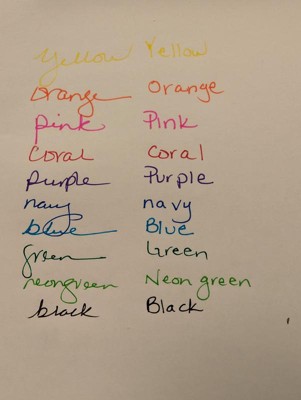 yellow Yellow
orange Orange
pink Pink
coral Coral
purple Purple
navy navy
blue Blue
green Green
neongreen Neon green
black Black